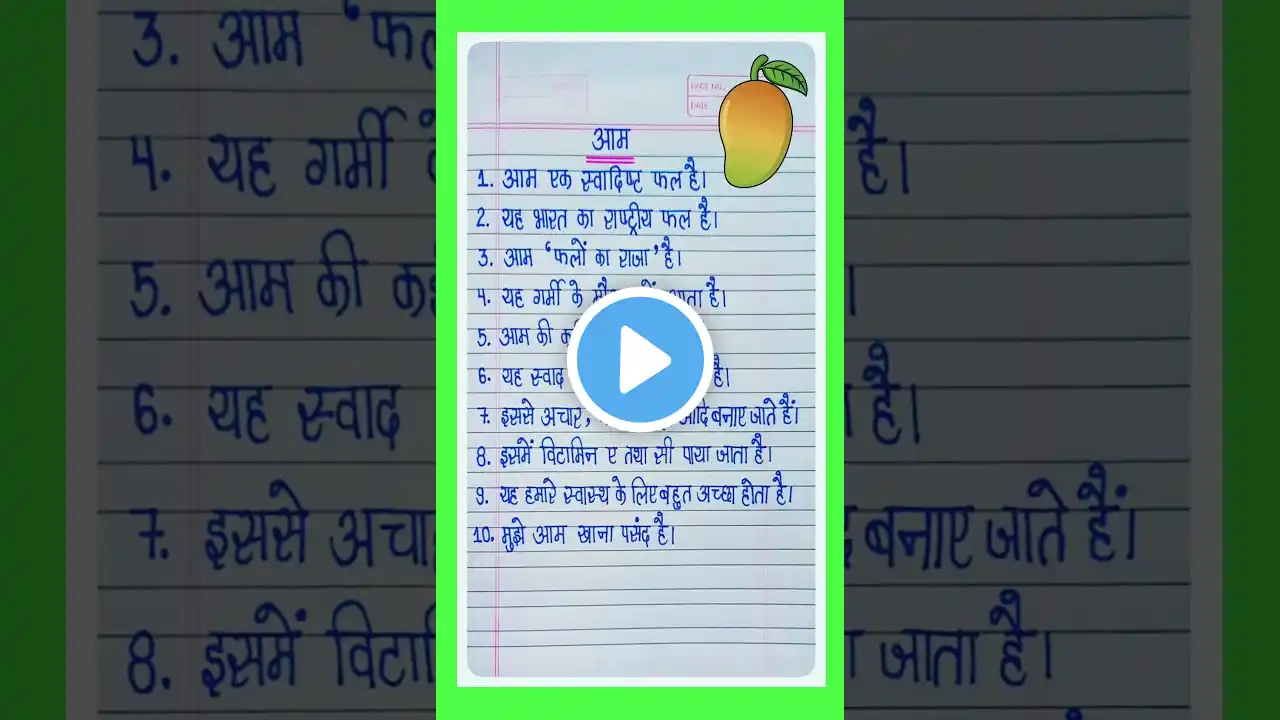 PAGE NO.
DATE
आम
1. आम एक स्वादिष्ट फल है।
2. यह भारत का राष्ट्रीय फल है।
3. आम ‘फलों का राजा’ है।
4. यह गर्मी के है।
5. आम की
6. यह स्वाद है।
7. इससे अचार, आदि बनाए जाते हैं।
8. इसमें विटामिन ए तथा सी पाया जाता है।
9. यह हमारे स्वास्य के लिए बहुत अच्छा होता है।
10. मुझे आम खाना पसंद है।